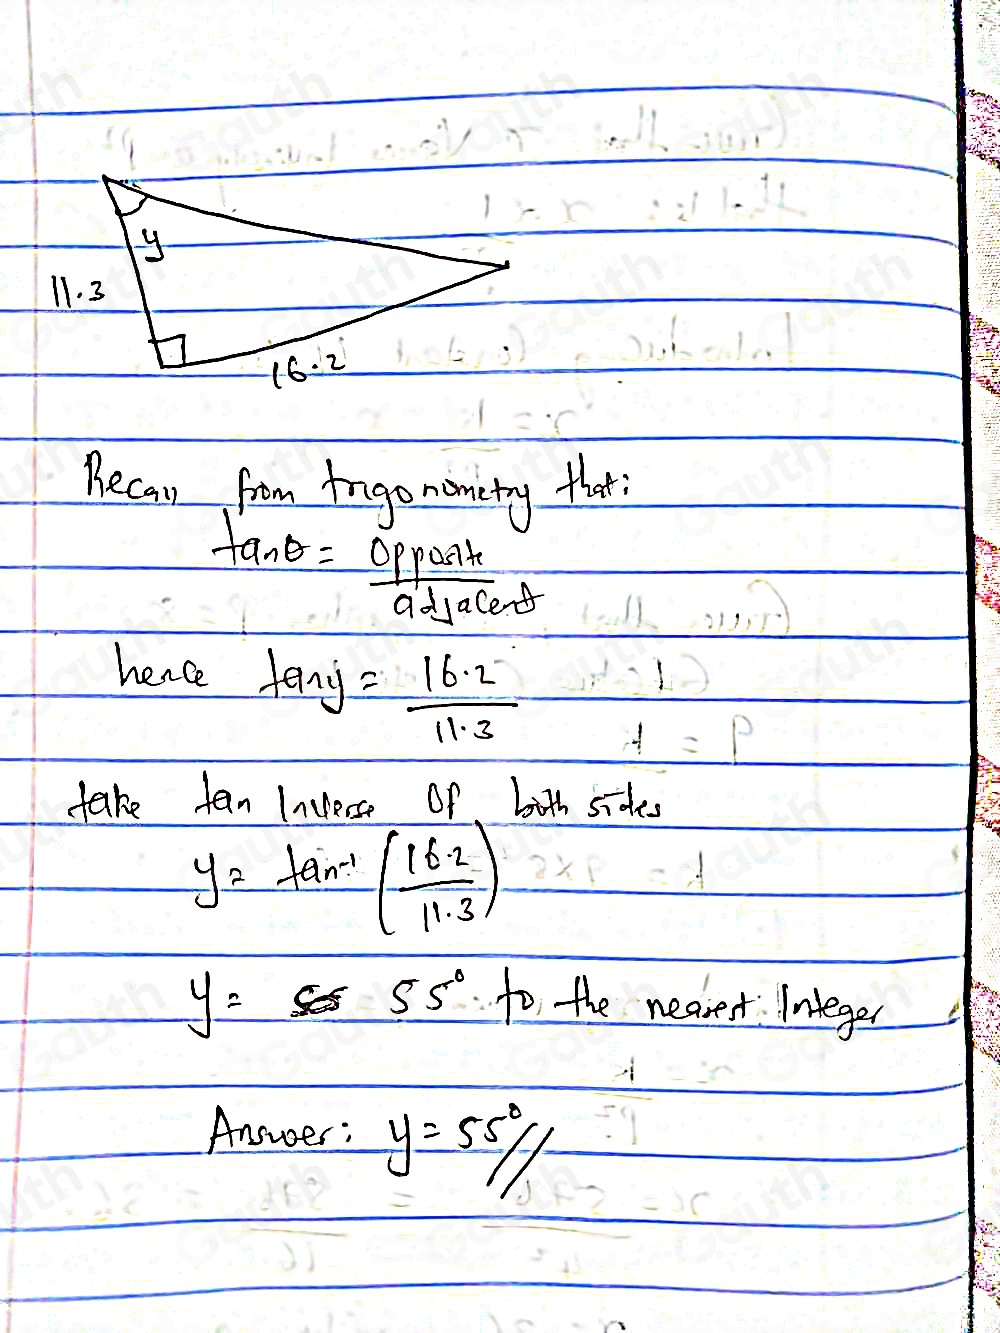 y
11.3
16.2
Recall from trigonometry that:
tanθ = opposite
adjacent
hence tany = 16.2
11.3
take tan Inverse OF both sides
y = tan⁻¹ (16.2
11.3)
y = 55° to the nearest Integer
Answer: y = 55°//